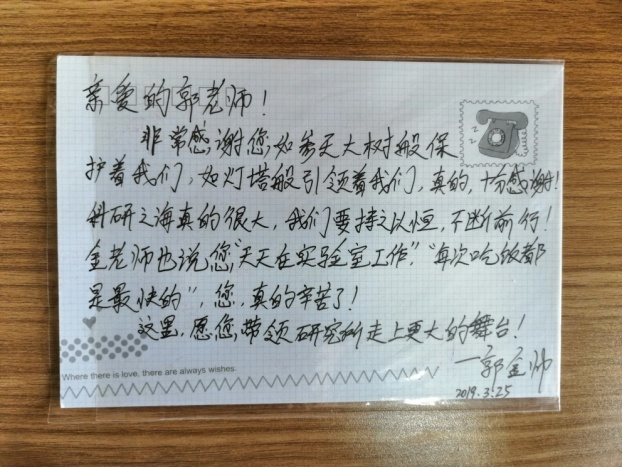 亲爱的郭老师！
非常感谢您，如参天大树般保
护着我们，如灯塔般引领着我们，真的，十分感谢！
科研之海真的很大，我们要持之以恒，不断前行！
金老师也说您“天天在实验室工作”，“每次吃饭都
是最快的”，您，真的辛苦了！
这里，愿您，带领研究所走上更大的舞台！
—郭金帅
2019.3.25
Where there is love, there are always wishes.